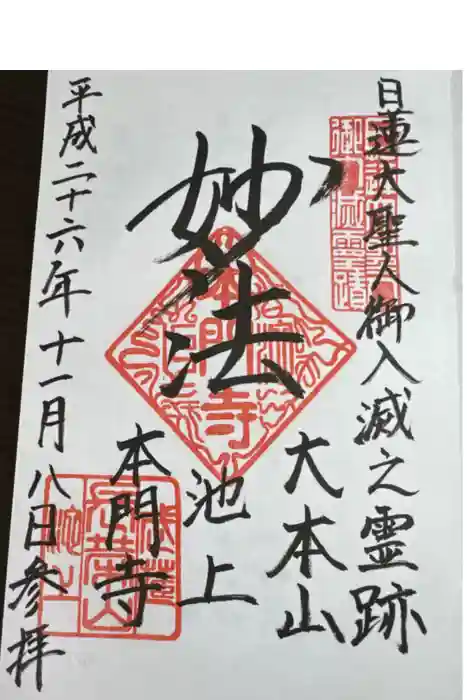 日蓮大聖人御入滅之霊跡
妙法
大本山
池上
本門寺
平成二十六年十一月八日参拝
本門寺